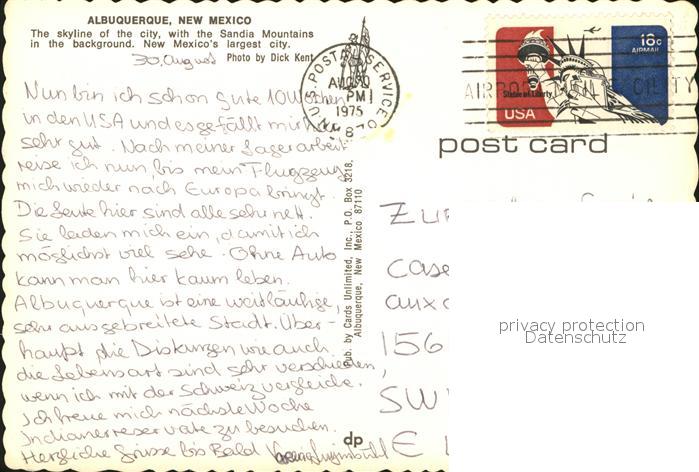 ALBUQUERQUE, NEW MEXICO
The skyline of the city, with the Sandia Mountains
in the background. New Mexico's largest city.
30. August Photo by Dick Kent
Nun bin ich schon gute 10 Wochen
in den USA und es gefällt mir
sehr gut. Nach meiner Lagerarbeit
reise ich nun, bis mein Flugzeug
mich wieder nach Europa bringt.
Die Leute hier sind alle sehr nett.
Sie laden mich ein, damit ich
möglichst viel sehe. Ohne Auto
kann man hier kaum leben.
Albuquerque ist eine weitläufige,
sehr ausgebreitete Stadt. Über-
haupt die Distanzen wie auch
die Lebensart sind sehr verschieden,
wenn ich mit der Schweiz vergleiche.
Ich freue mich nächste Woche
Indianerreservate zu besuchen.
Herzliche Grüsse bis Bald
Pub. by Cards Unlimited, Inc., P.O. Box 3218,
Albuquerque, New Mexico 87110
dp
U.S. POSTAL SERVICE
AUG 30
PM
1975
Statue of Liberty
USA
18c
AIRMAIL
post card
case
156
SW
E
privacy protection
Datenschutz